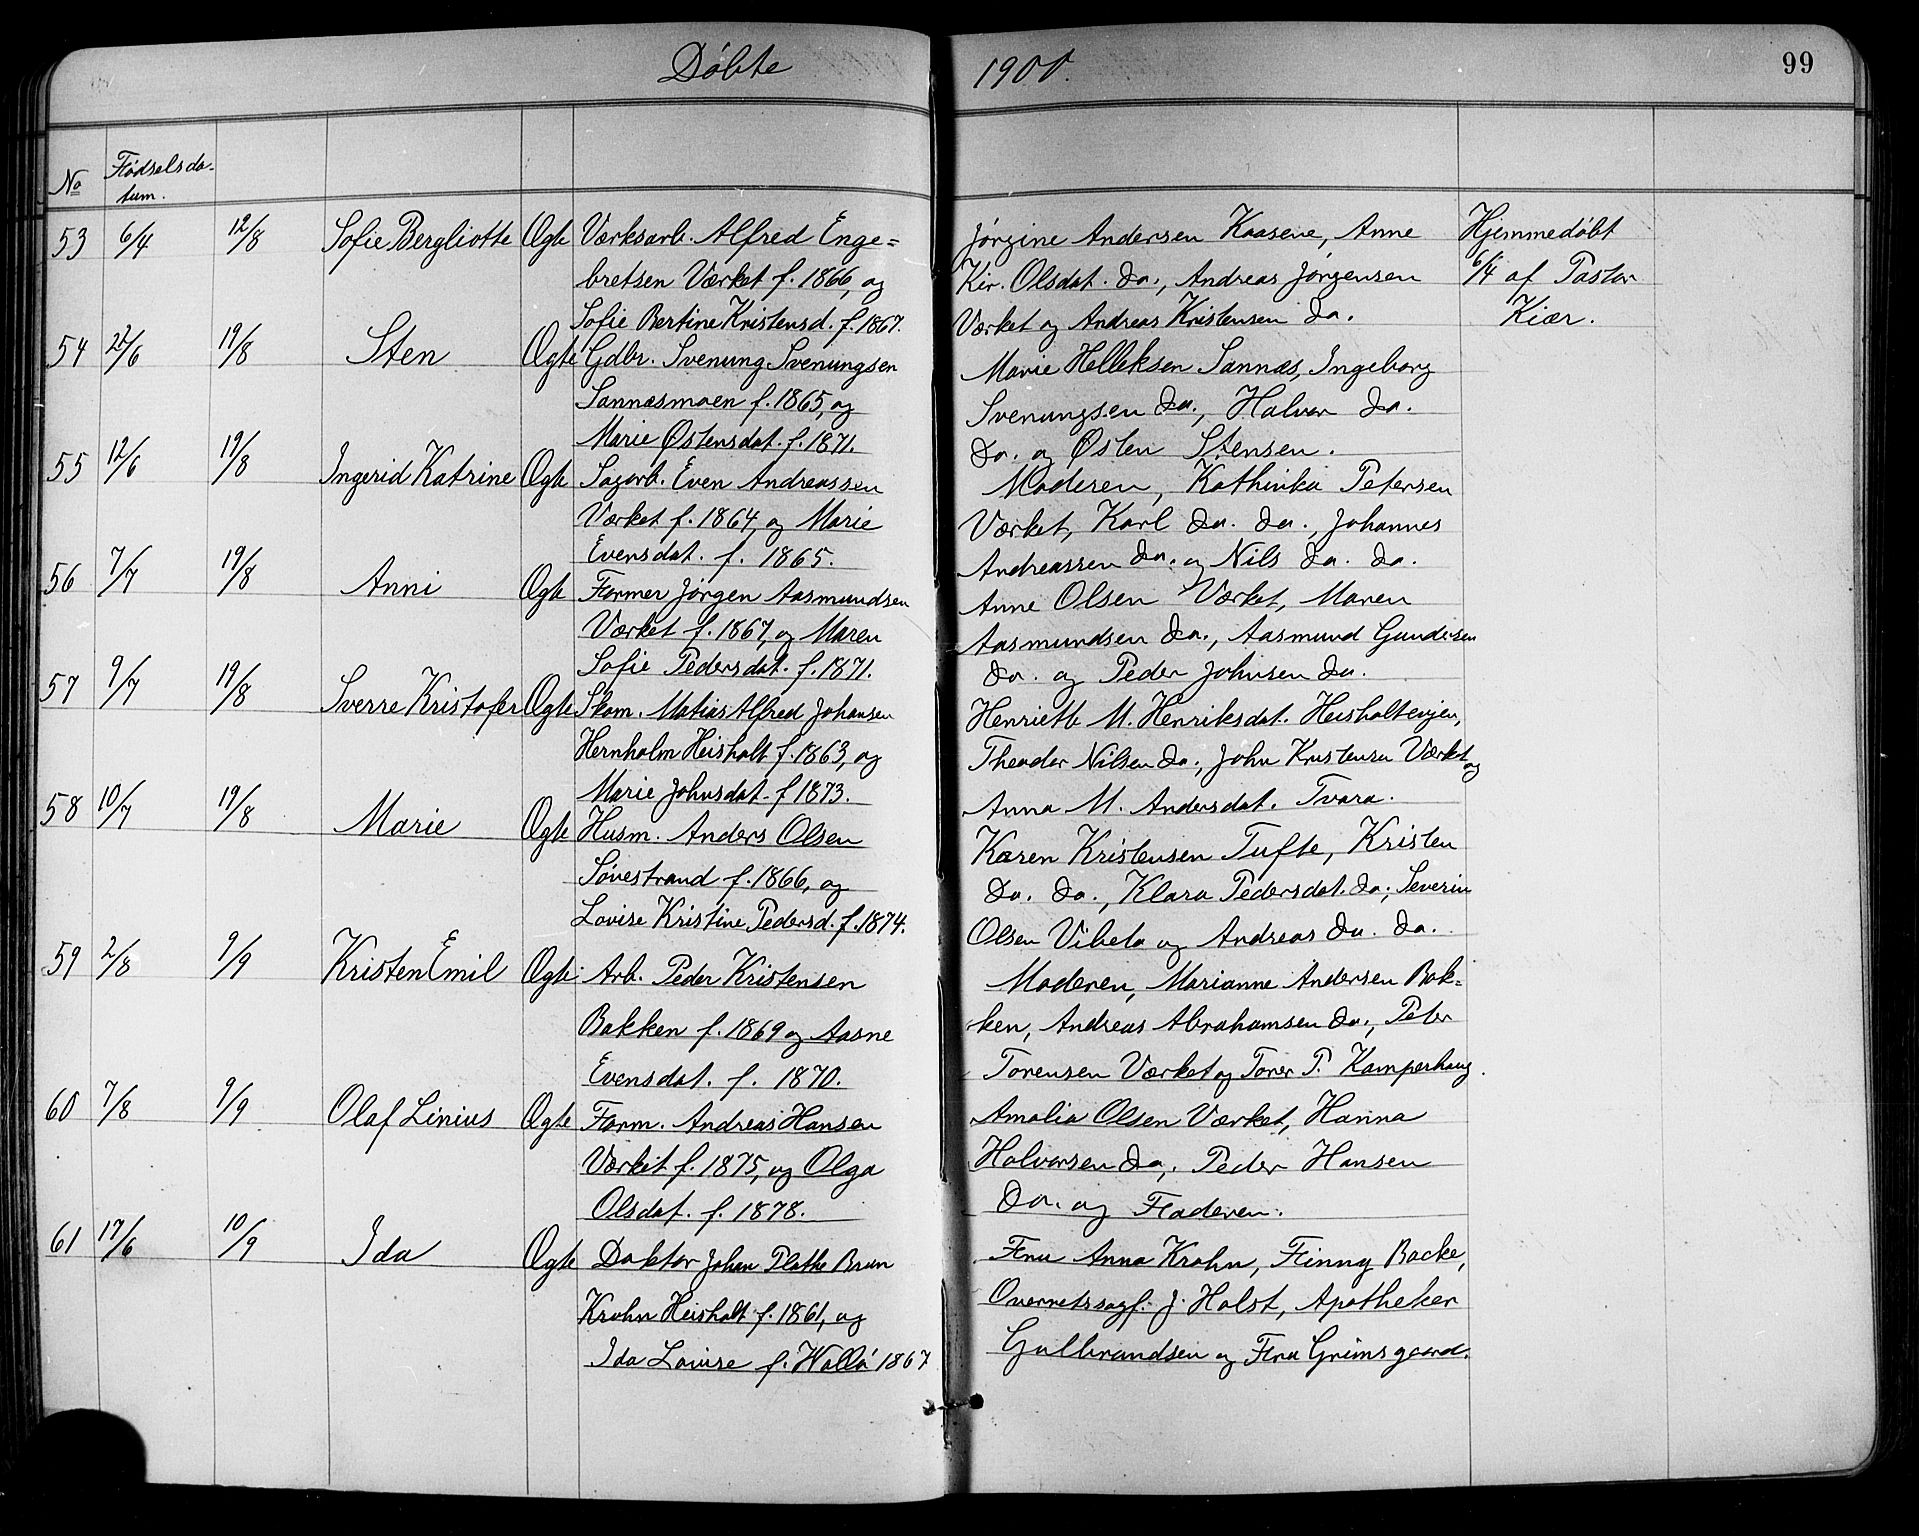 Døbte 1900. 99
No Fødselsda-
tum.
53 6/4 12/8 Sofie Bergliotte Ægte Værksarb. Alfred Enge=
bretsen Værket f. 1866, og
Sofie Bertine Kristensd. f. 1867.
Jørgine Andersen Kaasene, Anne
Kir. Olsdat. do., Andreas Jørgensen
Værket og Andreas Kristensen do.
Hjemmedøbt
6/4 af Pastor
Kiær.
54 /6 19/8 Sten Ægte Gdbr. Svenung Svenungsen
Sannæsmoen f. 1865, og
Marie Østensdat. f. 1871.
Marie Helleksen Sannæs, Ingeborg
Svenungsen do., Halvor do.
do. og Østen Stensen.
55 12/6 19/8 Ingerid Katrine Ægte Sagarb. Even Andreassen
Værket f. 1864, og Marie
Evensdat. f. 1865.
Moderen, Kathinka Petersen
Værket, Karl do. do., Johannes
Andreassen do. og Nils do. do.
56 7/7 19/8 Anni Ægte Former Jørgen Aasmundsen
Værket f. 1867, og Maren
Sofie Pedersdat. f. 1871.
Anne Olsen Værket, Maren
Aasmundsen do., Aasmund Gundersen
do. og Peder Johnsen do.
57 9/7 19/8 Sverre Kristofer Ægte Skom. Matias Alfred Johansen
Hernholm Heisholt f. 1863, og
Marie Johnsdat. f 1873.
Henriette M. Henriksdat. Heisholteijen,
Theodor Nilsen do., John Kristensen Værket og
Anna M. Andersdat. Tvara.
58 10/7 19/8 Marie Ægte Husm. Anders Olsen
Søvestrand f. 1866, og
Lovise Kristine Pedersd. f. 1874.
Karen Kristensen Tufte, Kristen
do. do., Klara Pedersdat. do., Severin
Olsen Vibeto og Andreas do. do.
59 2/8 9/9 Kristen Emil Ægte Arb. Peder Kristensen
Bakken f. 1869 og Aasne
Evensdat. f. 1870.
Moderen, Marianne Andersen Bak=
ken, Andreas Abrahamsen do., Peter
Torensen Værket og Torer P. Kamperhaug.
60 7/8 9/9 Olaf Linius Ægte Form. Andreas Hansen
Værket f. 1875, og Olga
Olsdat. f. 1878.
Amalia Olsen Værket, Hanna
Halvorsen do., Peder Hansen
do. og Faderen.
61 17/6 10/9 Ida Ægte Doktor Johan Plathe Brun
Krohn Heisholt f. 1861, og
Ida Louise f. Wallø 1867
Fru Anna Krohn, Finny Backe,
Overretssagf. J. Holst, Apotheker
Gulbrandsen og Fru Grimsgaard.